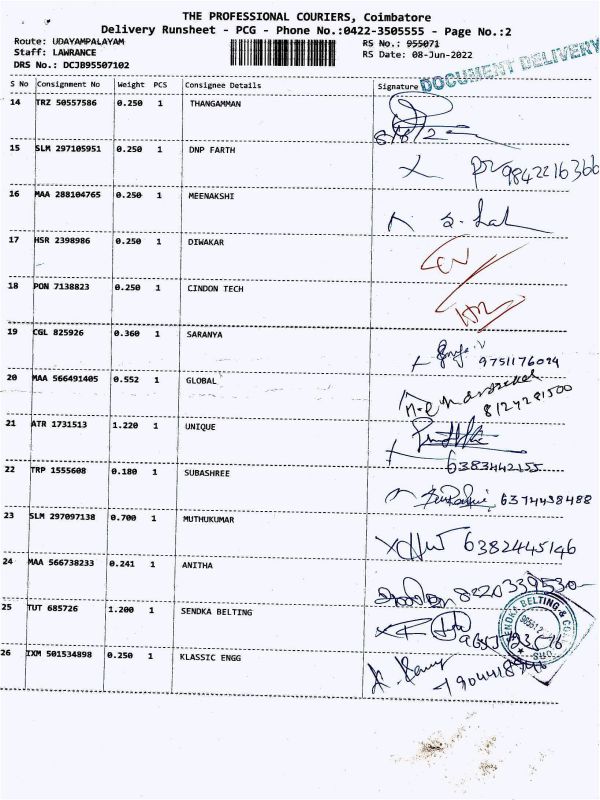 THE PROFESSIONAL COURIERS, Coimbatore
Delivery Runsheet - PCG - Phone No.:0422-3505555 - Page No.:2
Route: UDAYAMPALAYAM RS No.: 955071
Staff: LAWRANCE RS Date: 08-Jun-2022
DRS No.: DCJB95507102 DOCUMENT DELIVERY
S No Consignment No Weight PCS Consignee Details Signature
14 TRZ 50557586 0.250 1 THANGAMMAN
8/6/22
15 SLM 297105951 0.250 1 DNP FARTH
9842216366
16 MAA 288104765 0.250 1 MEENAKSHI
17 HSR 2398986 0.250 1 DIWAKAR
18 PON 7138823 0.250 1 CINDON TECH
19 CGL 825926 0.360 1 SARANYA
9751176024
20 MAA 566491405 0.552 1 GLOBAL
8124281500
21 ATR 1731513 1.220 1 UNIQUE
6383442155
22 TRP 1555608 0.180 1 SUBASHREE
6374438488
23 SLM 297097138 0.700 1 MUTHUKUMAR
6382445146
24 MAA 566738233 0.241 1 ANITHA
8220339530
25 TUT 685726 1.200 1 SENDKA BELTING
26 IXM 501534898 0.250 1 KLASSIC ENGG